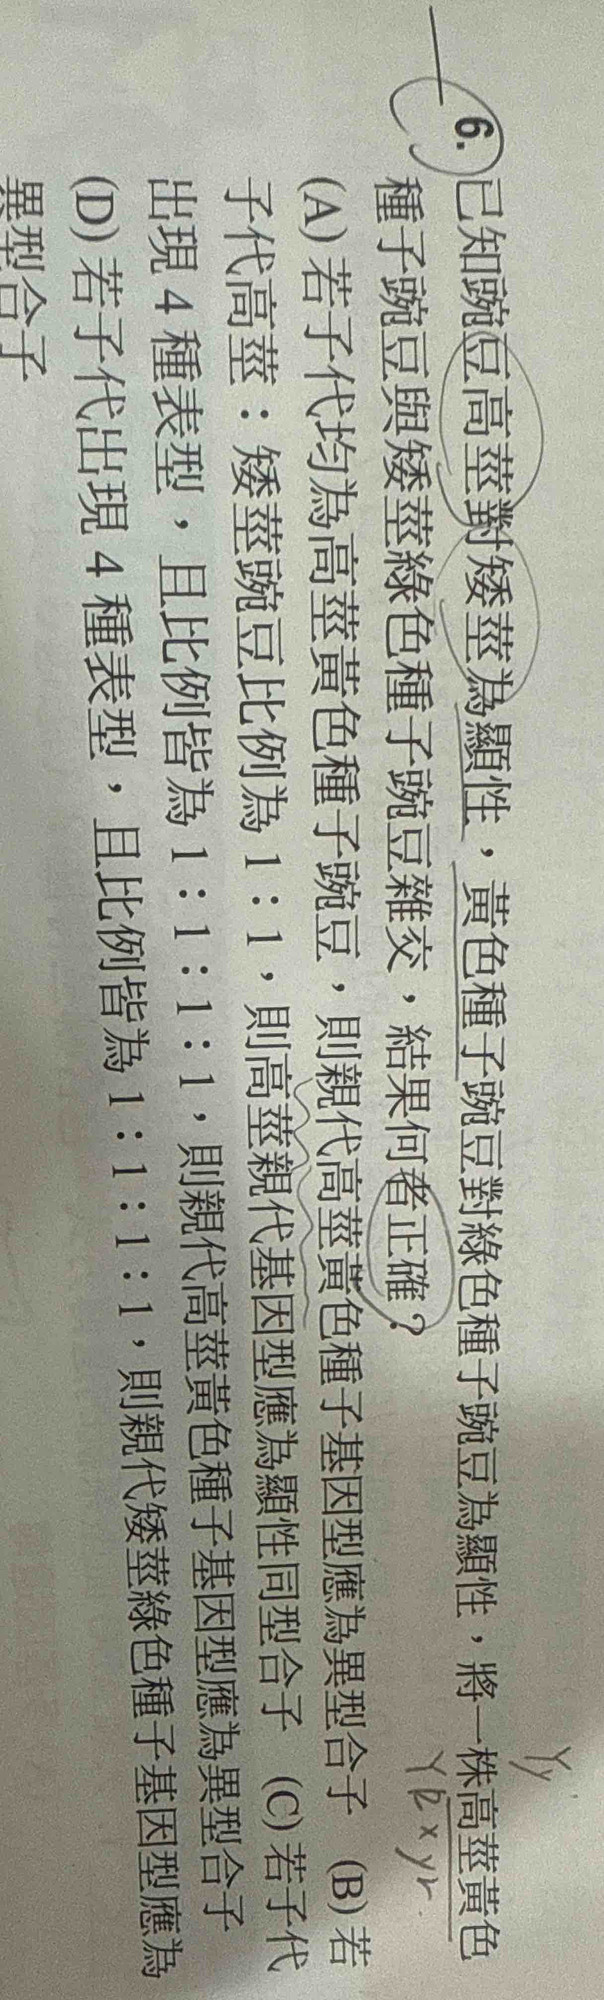 6. 已知豌豆高莖對矮莖為顯性，黃色種子豌豆對綠色種子豌豆為顯性，將一株高莖黃色
種子豌豆與矮莖綠色種子豌豆雜交，結果何者正確？
(A) 若子代均為高莖黃色種子豌豆，則親代高莖黃色種子基因型應為異型合子 (B) 若
子代高莖：矮莖豌豆比例為 1：1，則高莖親代基因型應為顯性同型合子 (C) 若子代
出現 4 種表型，且比例皆為 1：1：1：1，則親代高莖黃色種子基因型應為異型合子
(D) 若子代出現 4 種表型，且比例皆為 1：1：1：1，則親代矮莖綠色種子基因型應為
異型合子
Yy
YR × yr